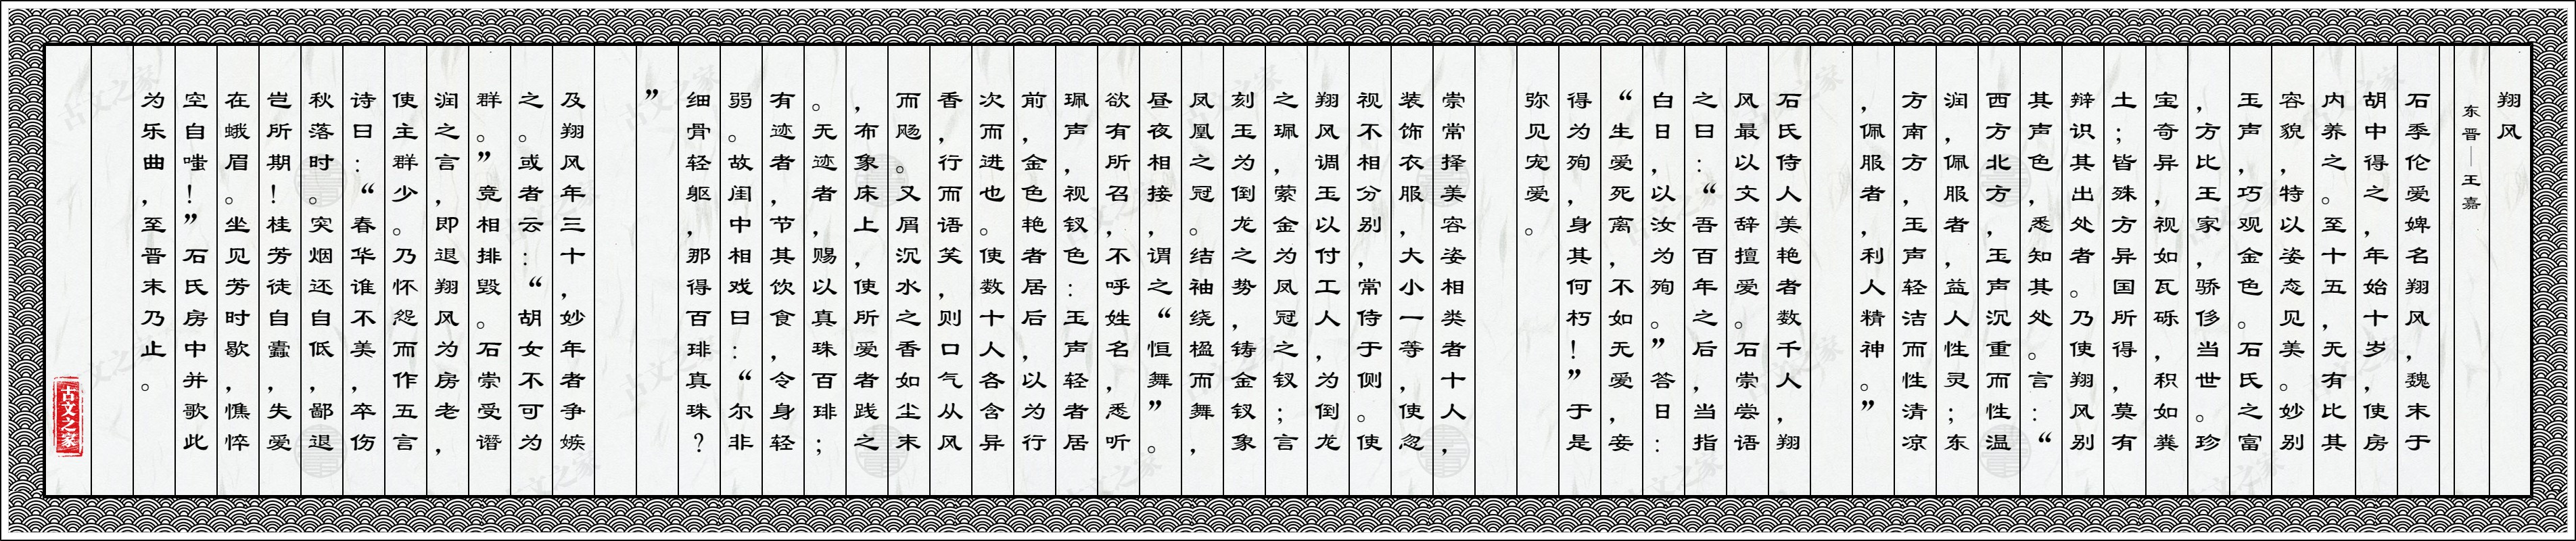 翔风
东晋｜王嘉
石季伦爱婢名翔风，魏末于
胡中得之，年始十岁，使房
内养之。至十五，无有比其
容貌，特以姿态见美。妙别
玉声，巧观金色。石氏之富
，方比王家，骄侈当世。珍
宝奇异，视如瓦砾，积如粪
土；皆殊方异国所得，莫有
辩识其出处者。乃使翔风别
其声色，悉知其处。言：“
西方北方，玉声沉重而性温
润，佩服者，益人性灵；东
方南方，玉声轻洁而性清凉
，佩服者，利人精神。”
石氏侍人美艳者数千人，翔
风最以文辞擅爱。石崇尝语
之曰：“吾百年之后，当指
白日，以汝为殉。”答曰：
“生爱死离，不如无爱，妾
得为殉，身其何朽！”于是
弥见宠爱。
崇常择美容姿相类者十人，
装饰衣服，大小一等，使忽
视不相分别，常侍于侧。使
翔风调玉以付工人，为倒龙
之珮，萦金为凤冠之钗；言
刻玉为倒龙之势，铸金钗象
凤凰之冠。结袖绕楹而舞，
昼夜相接，谓之“恒舞”。
欲有所召，不呼姓名，悉听
珮声，视钗色：玉声轻者居
前，金色艳者居后，以为行
次而进也。使数十人各含异
香，行而语笑，则口气从风
而飏。又屑沉水之香如尘末
，布象床上，使所爱者践之
。无迹者，赐以真珠百琲；
有迹者，节其饮食，令身轻
弱。故闺中相戏曰：“尔非
细骨轻躯，那得百琲真珠？
”
及翔风年三十，妙年者争嫉
之。或者云：“胡女不可为
群。”竞相排毁。石崇受谮
润之言，即退翔风为房老，
使主群少。乃怀怨而作五言
诗曰：“春华谁不美，卒伤
秋落时。突烟还自低，鄙退
岂所期！桂芳徒自蠹，失爱
在蛾眉。坐见芳时歇，憔悴
空自嗤！”石氏房中并歌此
为乐曲，至晋末乃止。
古文之家